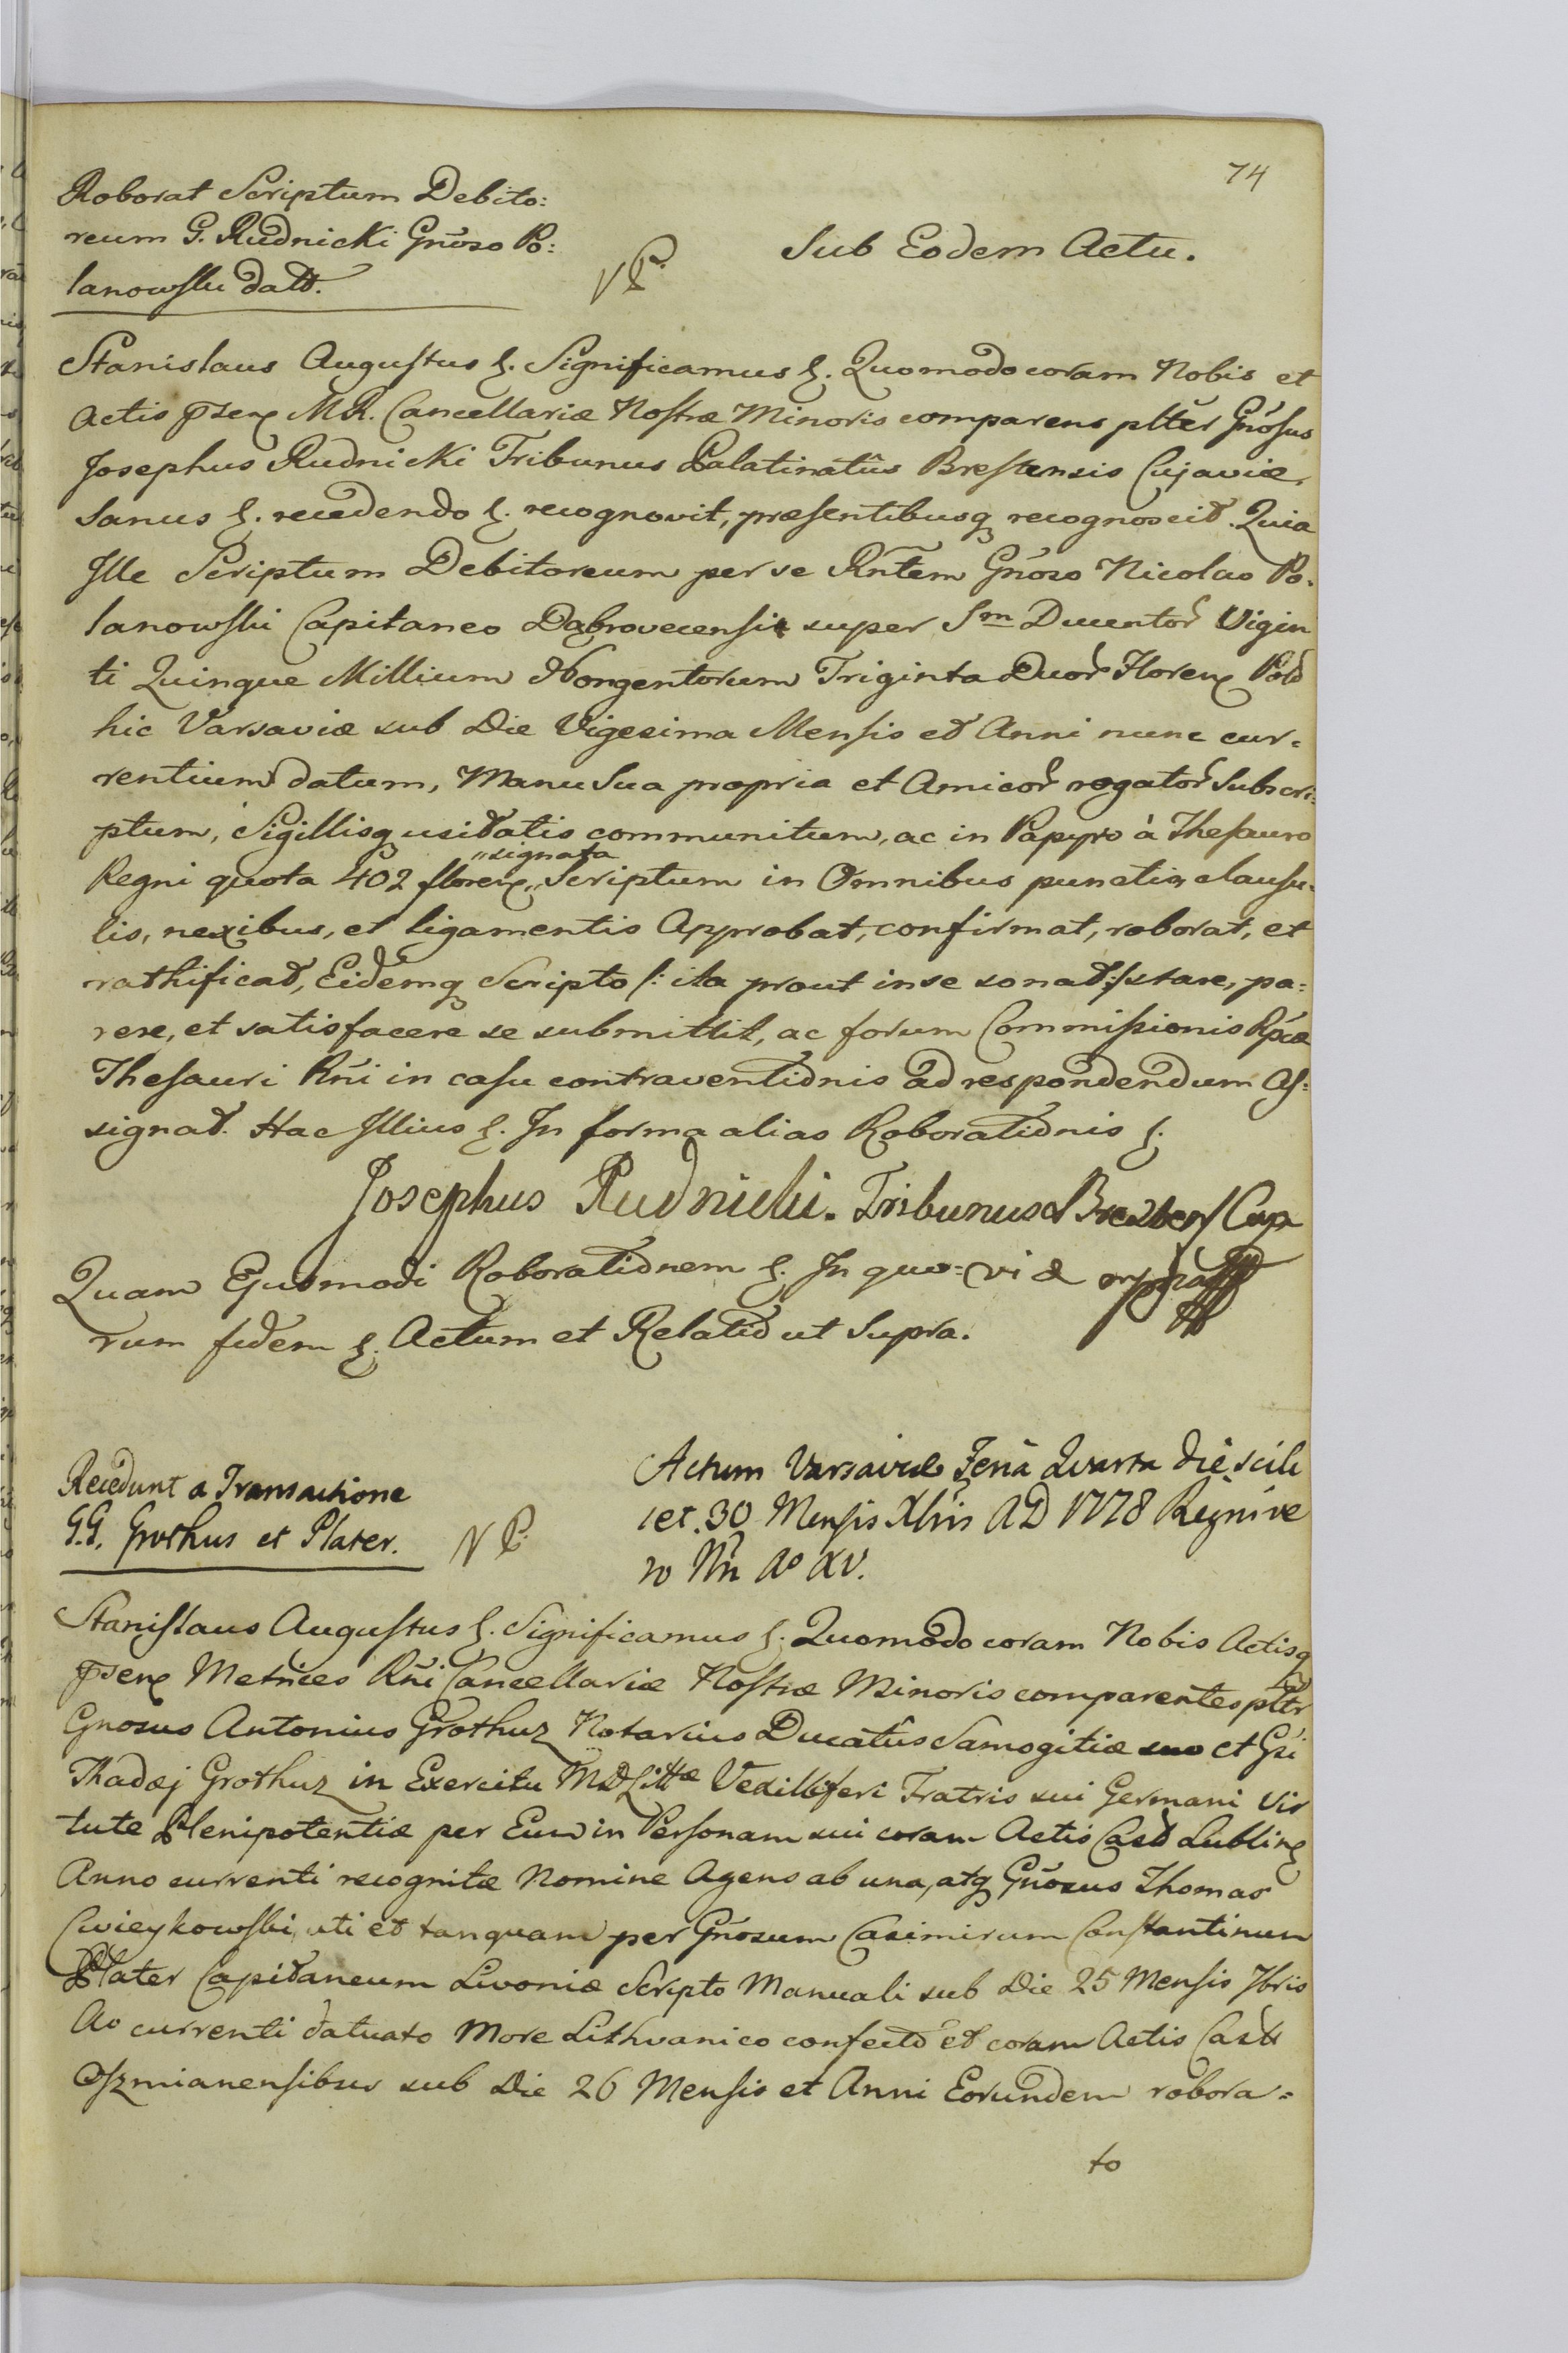 74
Roborat Scriptum Debito:
reum G. Rudnicki Gnöso Po:
lanowski datt.
Sub Eodem Actu.
Stanislaus Augustus &. Significamus &. Quomodo coram Nobis et
Actis psen MR. Cancellariæ Nostræ Minoris comparens plter Gnosus
Josephus Rudnicki Tribunus Palatinatûs Brestensis Cujaviæ,
Sanus &. recedendo &. recognovit, præsentibusq recognoscit. Quia
Ille Scriptum Debitoreum per se Rntem Gnoso Nicolao Po:
lanowski Capitaneo Dabrovecensi super Sm Ducentor Vigin
ti Quinque Millium Nongentorum Triginta Duor Floren Pold
hic Varsaviæ sub Die Vigesima Mensis et Anni nunc cur:
rentium datum, Manu Sua propria et Amicor rogator Subscri:
ptum, Sigillisq usitatis communitum, ac in Papyro à Thesauro
Regni quota 402 floren „signata„ Scriptum in Omnibus punctis, clausu:
lis, nexibus, et ligamentis Approbat, confirmat, roborat, et
rathificat, Eidemq Scripto /: ita prout in se sonat :/ stare, pa:
rere, et satisfacere se submittit, ac forum Commissionis Rpcæ
Thesauri Rni in casu contraventidnis ad respondendum As:
signat. Hac Illius &. In forma alias Roboratidnis &.
Josephus Rudnicki. Tribunus
Quam Ejusmodi Roboratidnem &. In quo:
rum fidem &. Actum et Relatid ut Supra.
Recedunt a Transactione
G.G. Grothus et Plater.
Actum Varsaviæ Feria Quarta die scili
cet. 30 Mensis Xbris AD 1778 Regni ve
ro Nri Ao XV.
Stanislaus Augustus &. Significamus &. Quomodo coram Nobis Actisq
psen Metrices Rni Cancellariæ Nostræ Minoris comparentes plter
Gnosus Antonius Grothuz Notarius Ducatûs Samogitiæ suo et Gsi
Thadæj Grothuz in Exercitu MDLittæ Vexilliferi Fratris sui Germani vir
tute Plenipotentiæ per Eum in Personam sui coram Actis Castd Lublin
Anno currenti recognitæ Nomine Agens ab una, atq Gnosus Thomas
Cwieykowski, uti et tanquam per Gnosum Casimirum Constantinum
Plater Capitaneum Livoniæ Scripto Manuali sub Die 25 Mensis 7bris
Ao currenti datuato More Lithvanico confecto et coram Actis Castt
Oszmianensibus sub Die 26 Mensis et Anni Eorundem robora=
to